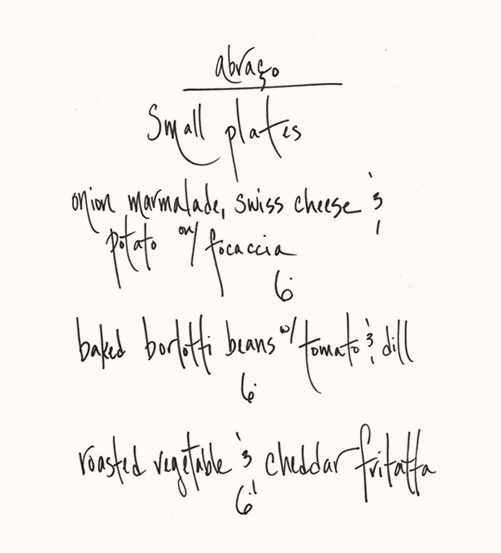 abraço
Small plates
onion marmalade, swiss cheese &
potato on/ focaccia
6.
baked borlotti beans w/ tomato & dill
6.
roasted vegetable & cheddar fritatta
6.